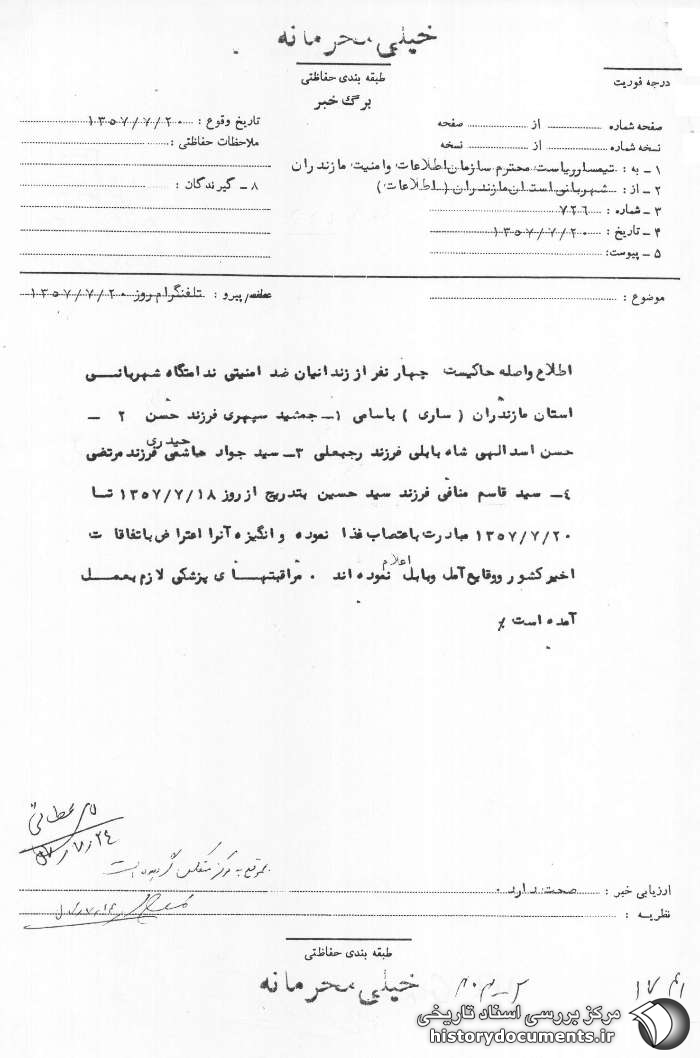 خیلی محرمانه
طبقه بندی حفاظتی
برگ خبر
درجه فوریت
صفحه شماره ............ از ............ صفحه
نسخه شماره ............ از ............ نسخه
۱ ـ به : تیمسار ریاست محترم سازمان اطلاعات و امنیت مازندران
۲ ـ از : شهربانی استان مازندران ( اطلاعات )
۳ ـ شماره : ۷۲٦
۴ ـ تاریخ : ۱۳۵۷/۷/۲۰
۵ ـ پیوست:
تاریخ وقوع : ۱۳۵۷/۷/۲۰
ملاحظات حفاظتی :
۸ ـ گیرندگان :
موضوع :
عطف/ پیرو : تلفنگرام روز ۱۳۵۷/۷/۲۰
اطلاع واصله حاکیست چهار نفر از زندانیان ضد امنیتی ندامتگاه شهربانی
استان مازندران ( ساری ) باسامی ۱ـ جمشید سپهری فرزند حسن ۲ ـ
حسن اسدالهی شاه بابلی فرزند رجبعلی ۳ـ سید جواد هاشمی حیدری فرزند مرتضی
۴ـ سید قاسم منافی فرزند سید حسین بتدریج از روز ۱۳۵۷/۷/۱۸ تا
۱۳۵۷/۷/۲۰ مبادرت باعتصاب غذا نموده و انگیزه آنرا اعتراض باتفاقات
اخیر کشور و وقایع آمل و بابل اعلام نموده اند ٠ مراقبتهای پزشکی لازم بعمل
آمده است ٪
۵۷/۷/۲۴
بموقع به مرکز منعکس گردیده است
ارزیابی خبر : صحت دارد ٠
نظریه :
طبقه بندی حفاظتی
خیلی محرمانه
مرکز بررسی اسناد تاریخی
historydocuments.ir